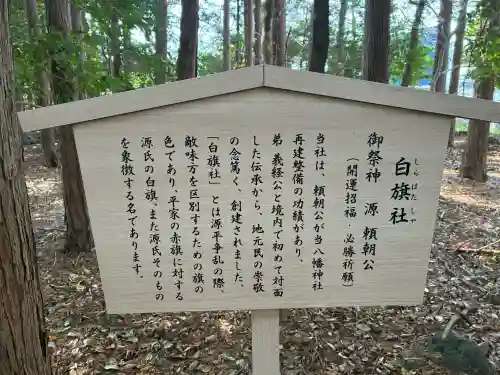 白旗社
しらはたしゃ
御祭神 源 頼朝公
(開運招福・必勝祈願)
当社は、頼朝公が当八幡神社
再建整備の功績があり、
弟 義経公と境内で初めて対面
した伝承から、地元民の崇敬
の念篤く、創建されました。
「白旗社」とは源平争乱の際、
敵味方を区別するための旗の
色であり、平家の赤旗に対する
源氏の白旗、また源氏そのもの
を象徴する名であります。